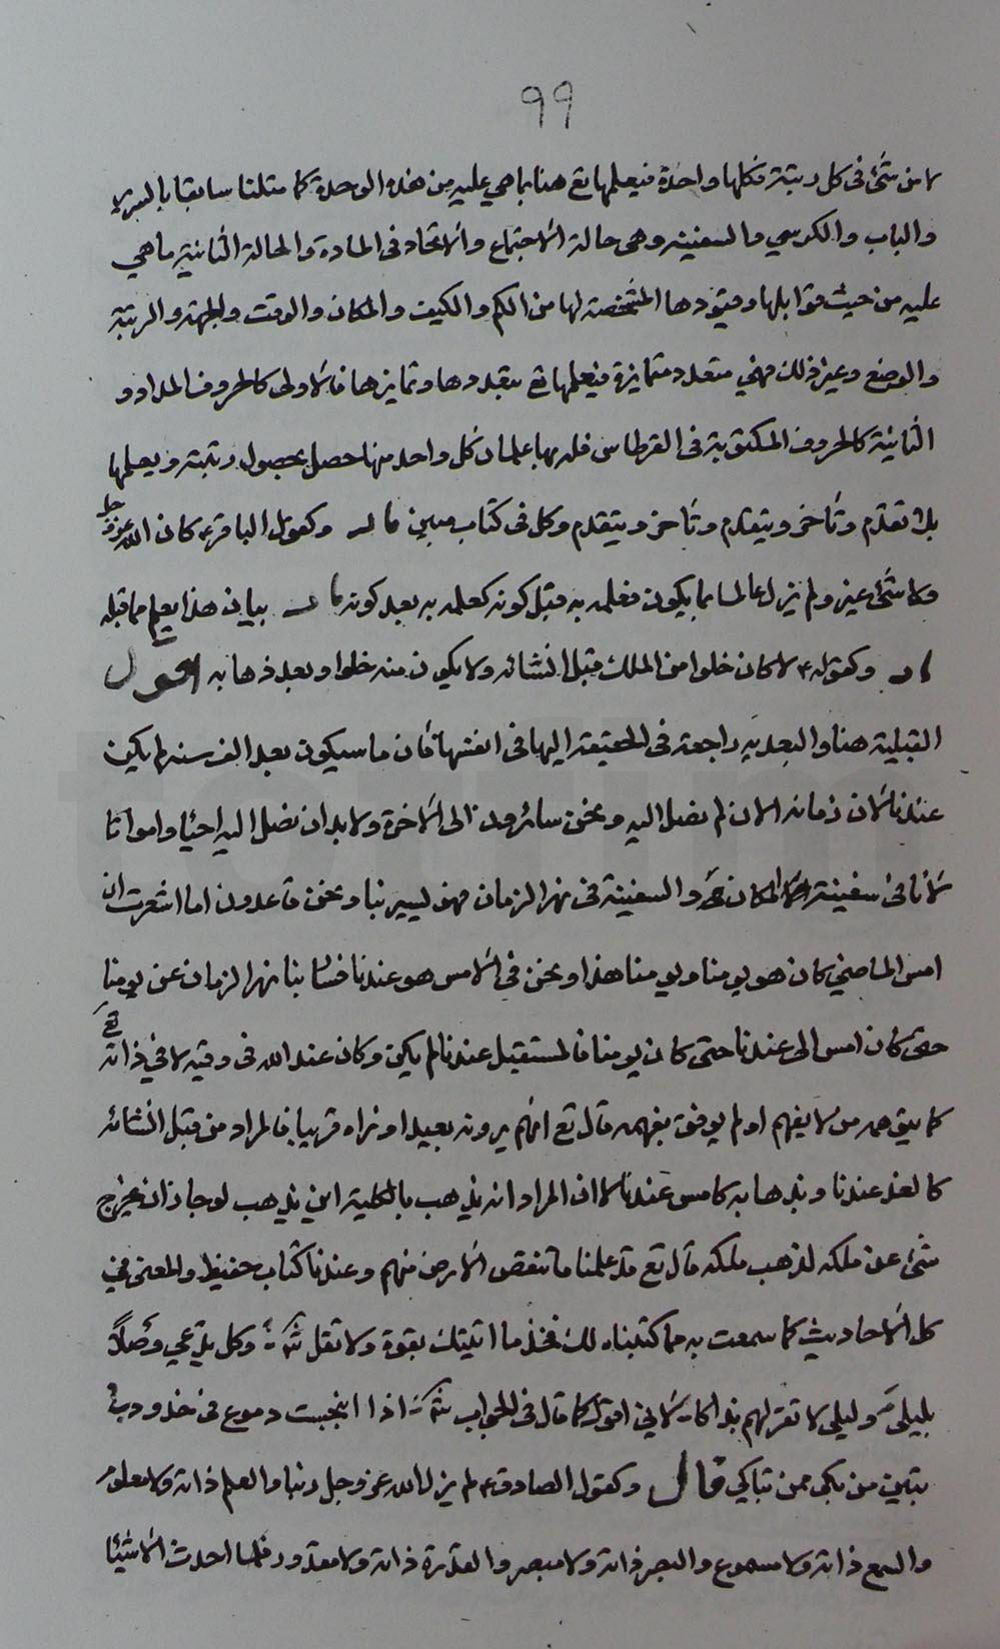 99
لا من شئ في كل رتبة فكلها واحدة فيعلمها تع هنا بما هي عليه من هذه الوحدة كما مثلنا سابقا بالسرير
والباب والكرسي والسفينة وهي حالة الاجتماع والاتحاد في المادة والحالة الثانية ما هي
عليه من حيث قوابلها وقيودها المشخصة لها من الكم والكيف والمكان والوقت والجهة والرتبة
والوضع وغير ذلك فهي متعددة متمايزة فيعلمها تع بتعددها وتمايزها فالاولى كالحروف المدادو
الثانية كالحروف المكتوبة في القرطاس فله بها علمان كل واحد منها حصل بحصول رتبته ويعلمها
بلا تقدم وتأخر ويتقدم وتأخر ويتقدم وكل في كتاب مبين قال وكقول الباقر ع كان الله عز و جل
ولا شئ غيره ولم يزل عالما بما يكون فعلمه به قبل كونه كعلمه به بعد كونه قال بيان هذا يعلم مما قبله
قال وكقوله ع لا كان خلوا من الملك قبل انشائه ولا يكون منه خلوا وبعد ذهابه اقول
القبلية هنا والبعدية راجعة في الحقيقة اليها في انفسها فان ما سيكون بعد الف سنة لم يكن
عندنا لان زمانه الان لم نصل اليه ونحن سائرون الى الاخرة ولا بد ان نصل اليه احياء وامواتا
لانا في سفينة المكان والسفينة في نهر الزمان فهو يسير بنا ونحن قاعدون اما اشعرت ان
امس الماضي كان هو يومنا ويومنا هذا ونحن في الامس هو عندنا فسار بنا نهر الزمان عن يومنا
حتى كان امس الى عندنا حتى كان يومنا فالمستقبل عندنا لم يكن وكان عند الله في وقته لا في ذاته تع
كما يتوهمه من لا يفهم او لم يوفق بفهمه قال تع انهم يرونه بعيدا ونراه قريبا فالمراد من قبل انشائه
كالغد عندنا وبذهابه كامس عندنا لا ان المراد انه يذهب بالكلية اين يذهب لو جاز ان يخرج
شئ عن ملكه لذهب ملكه قال تع قد علمنا ما تنقص الارض منهم وعندنا كتاب حفيظ والمعنى في
كل الاحاديث كما سمعت به مما كتبناه لك فخذ ما اتيتك بقوة ولا تقل شعر وكل يدعي وصلاً
بليلى وليلى لا تقر لهم بذاكا لاني اقول كما قال في الجواب شعر اذا انبجست دموع في خدود
تبين من بكى ممن تباكي قال وكقول الصادق ع لم يزل الله عز وجل ربنا والعلم ذاته ولا معلوم
والسمع ذاته ولا مسموع والبصر ذاته ولا مبصر والقدرة ذاته ولا مقدور فلما احدث الاشياء